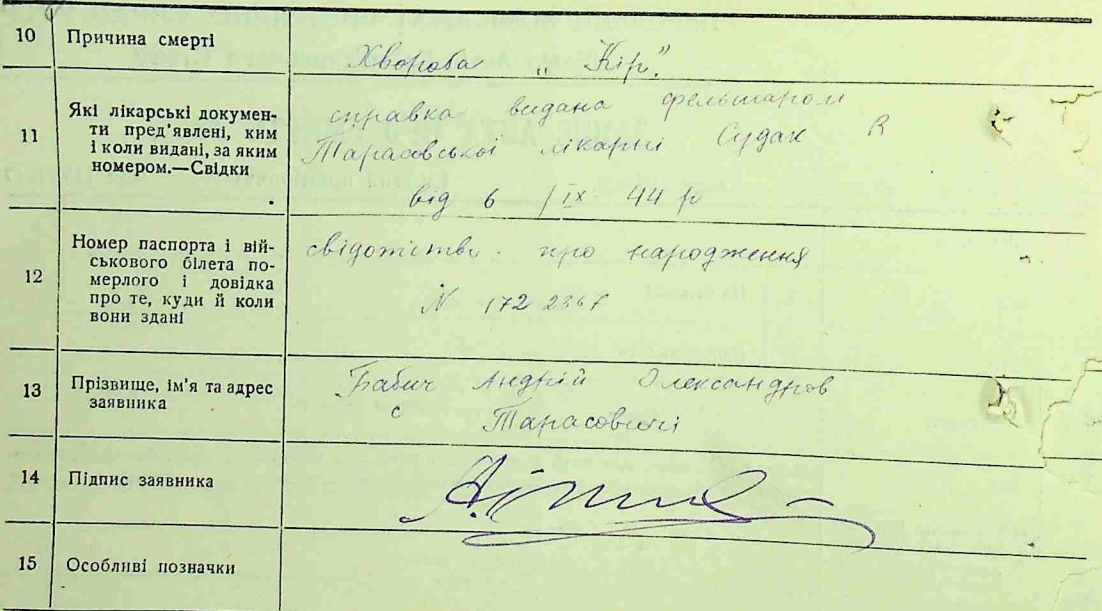 10 Причина смерті Хвороба „Кір."
11 Які лікарські документи пред'явлені, ким і коли видані, за яким номером.—Свідки
справка видана фельшаром
Тарасовської лікарні Судак
від 6 / ІХ 44 р
12 Номер паспорта і військового білета померлого і довідка про те, куди й коли вони здані
свідотство про народження
N 172
13 Прізвище, ім'я та адрес заявника
Бабич Андрій Олександров
с Тарасовичі
14 Підпис заявника
15 Особливі позначки